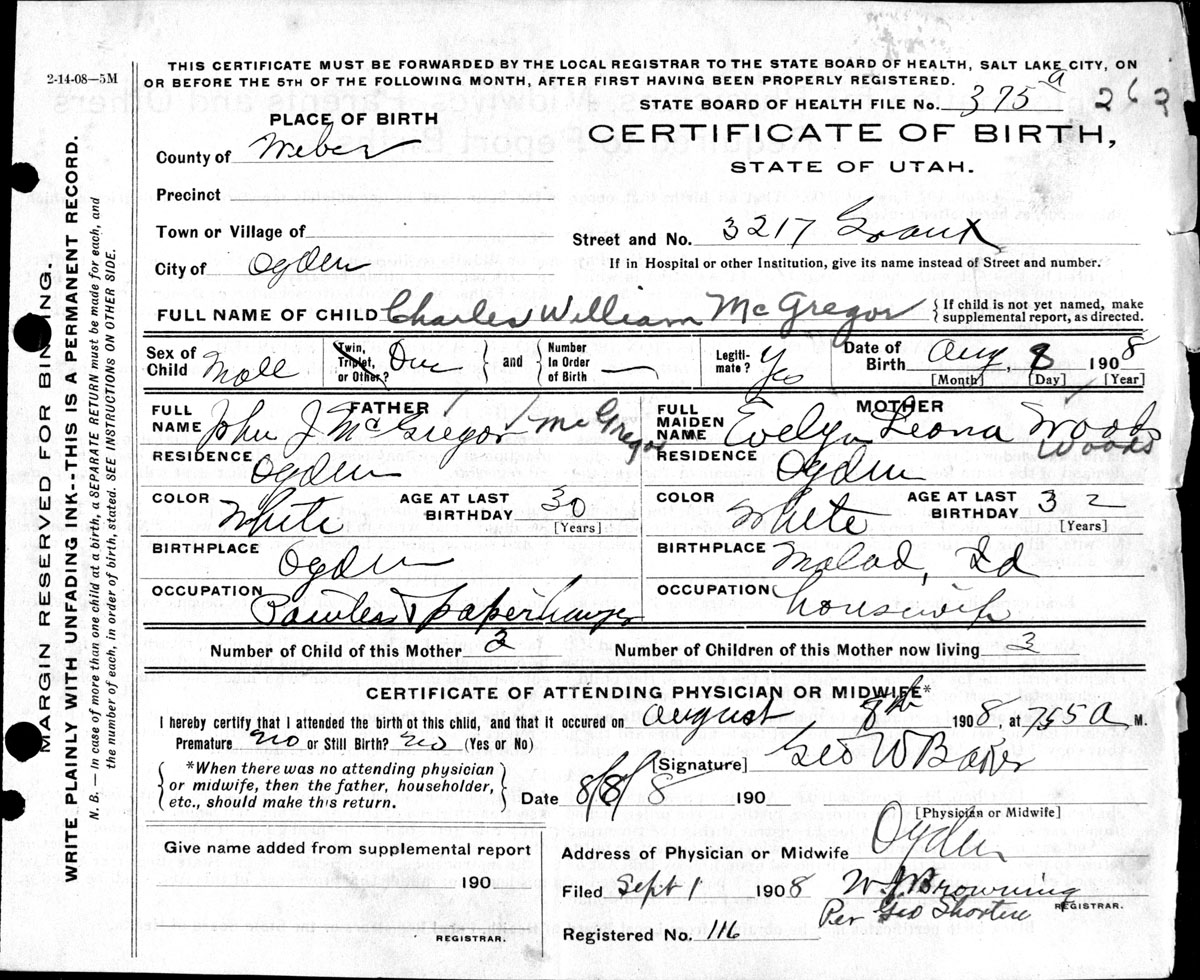 2-14-08—5M
THIS CERTIFICATE MUST BE FORWARDED BY THE LOCAL REGISTRAR TO THE STATE BOARD OF HEALTH, SALT LAKE CITY, ON
OR BEFORE THE 5TH OF THE FOLLOWING MONTH, AFTER FIRST HAVING BEEN PROPERLY REGISTERED.
STATE BOARD OF HEALTH FILE No. 375 a
PLACE OF BIRTH
CERTIFICATE OF BIRTH,
STATE OF UTAH.
County of Weber
Precinct
Town or Village of
Street and No. 3217 Grant
City of Ogden
If in Hospital or other Institution, give its name instead of Street and number.
FULL NAME OF CHILD Charles William McGregor {If child is not yet named, make
supplemental report, as directed.
Sex of Child Male
Twin, Triplet, or Other? One
and
Number In Order of Birth —
Legiti-mate? Yes
Date of Birth Aug, 8 1908
[Month] [Day] [Year]
FATHER
FULL NAME John J McGregor McGregor
RESIDENCE Ogden
COLOR White
AGE AT LAST BIRTHDAY 30 [Years]
BIRTHPLACE Ogden
OCCUPATION & paperhanger
MOTHER
FULL MAIDEN NAME Evelyn Leona Woods
Woods
RESIDENCE Ogden
COLOR White
AGE AT LAST BIRTHDAY 32 [Years]
BIRTHPLACE Malad, Id
OCCUPATION housewife
Number of Child of this Mother 3
Number of Children of this Mother now living 3
CERTIFICATE OF ATTENDING PHYSICIAN OR MIDWIFE*
I hereby certify that I attended the birth of this child, and that it occured on August, 8th 1908 at 755 A M.
Premature No or Still Birth? No (Yes or No)
*When there was no attending physician
or midwife, then the father, householder,
etc., should make this return.
[Signature] Geo W Baker
Date 8/8/8 190
[Physician or Midwife]
Give name added from supplemental report
190
REGISTRAR.
Address of Physician or Midwife Ogden
Filed Sept 1 1908 W J Browning
REGISTRAR.
Per Geo Shorten
Registered No. 116
MARGIN RESERVED FOR BINDING.
WRITE PLAINLY WITH UNFADING INK--THIS IS A PERMANENT RECORD.
N. B. — In case of more than one child at birth, a SEPARATE RETURN must be made for each, and
the number of each, in order of birth, stated. SEE INSTRUCTIONS ON OTHER SIDE.